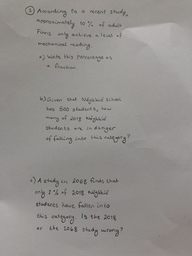 ② According to a recent study,
approximately 10 % of adult
Finns only achieve a level of
mechanical reading.
a) Write this percentage as
a fraction.
b) Given that school
has 500 students, how
many of 2018
students are in danger
of falling into this category?
c) A study in 2068 finds that
only 2 % of 2018
students have fallen into
this category. Is the 2018
or the 2068 study wrong?